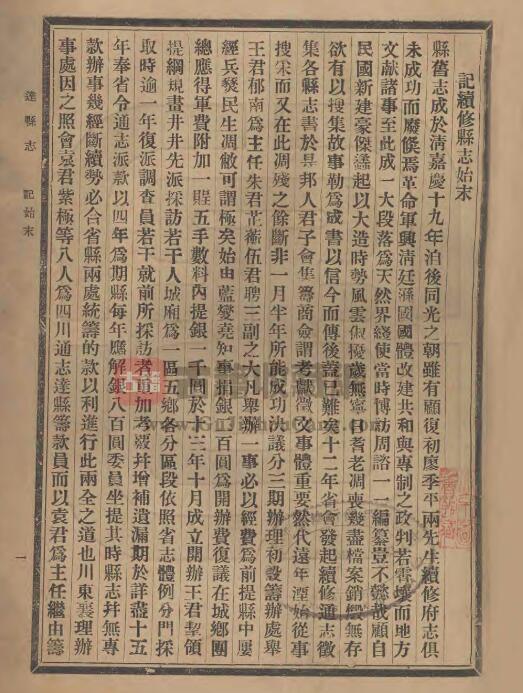 記續修縣志始末
縣舊志成於淸嘉慶十九年洎後同光之朝雖有顧復初廖季平兩先生續修府志俱
未成功而廢倐焉革命軍興淸廷遜國國體改建共和與專制之政判若霄壤而地方
文獻諸事至此成一大段落爲天然界綫使當時博訪周諮一一編纂豈不懿哉顧自
民國新建豪傑蠭起以大造時勢風雲俶擾歲無寧日耆老凋喪殘盡檔案銷燬無存
欲有以搜集故事勒爲成書以信今而傳後蓋已難矣十二年省會發起續修通志徵
集各縣志書於是邦人君子會集籌商僉謂考獻徵文事體重要然代遠年湮始從事
搜采而又在此凋殘之餘斷非一月半年所能成功決議分三期辦理初設籌辦處舉
王君郁南爲主任朱君芷蘅伍君聘三副之大凡舉辦一事必以經費爲前提縣中屢
經兵燹民生凋敝可謂極矣始由藍變堯知事捐銀一百圓爲開辦費復議在城鄉團
總應得軍費附加一程五手數料內提銀一千圓於十三年十月成立開辦王君挈領
提綱規畫井井先派採訪若干人城廂爲一區五鄉各分區段依照省志體例分門採
取時逾一年復派調查員若干就前所採訪者重加考覈幷增補遺漏期於詳盡十五
年奉省令通志派款以四年爲期縣每年應解銀八百圓委員坐提其時縣志幷無專
款辦事幾經斷續勢必合省縣兩處統籌的款以利進行此兩全之道也川東襄理辦
事處因之照會袁君紫極等八人爲四川通志達縣籌款員而以袁君爲主任繼由籌
達縣志
記始末
一